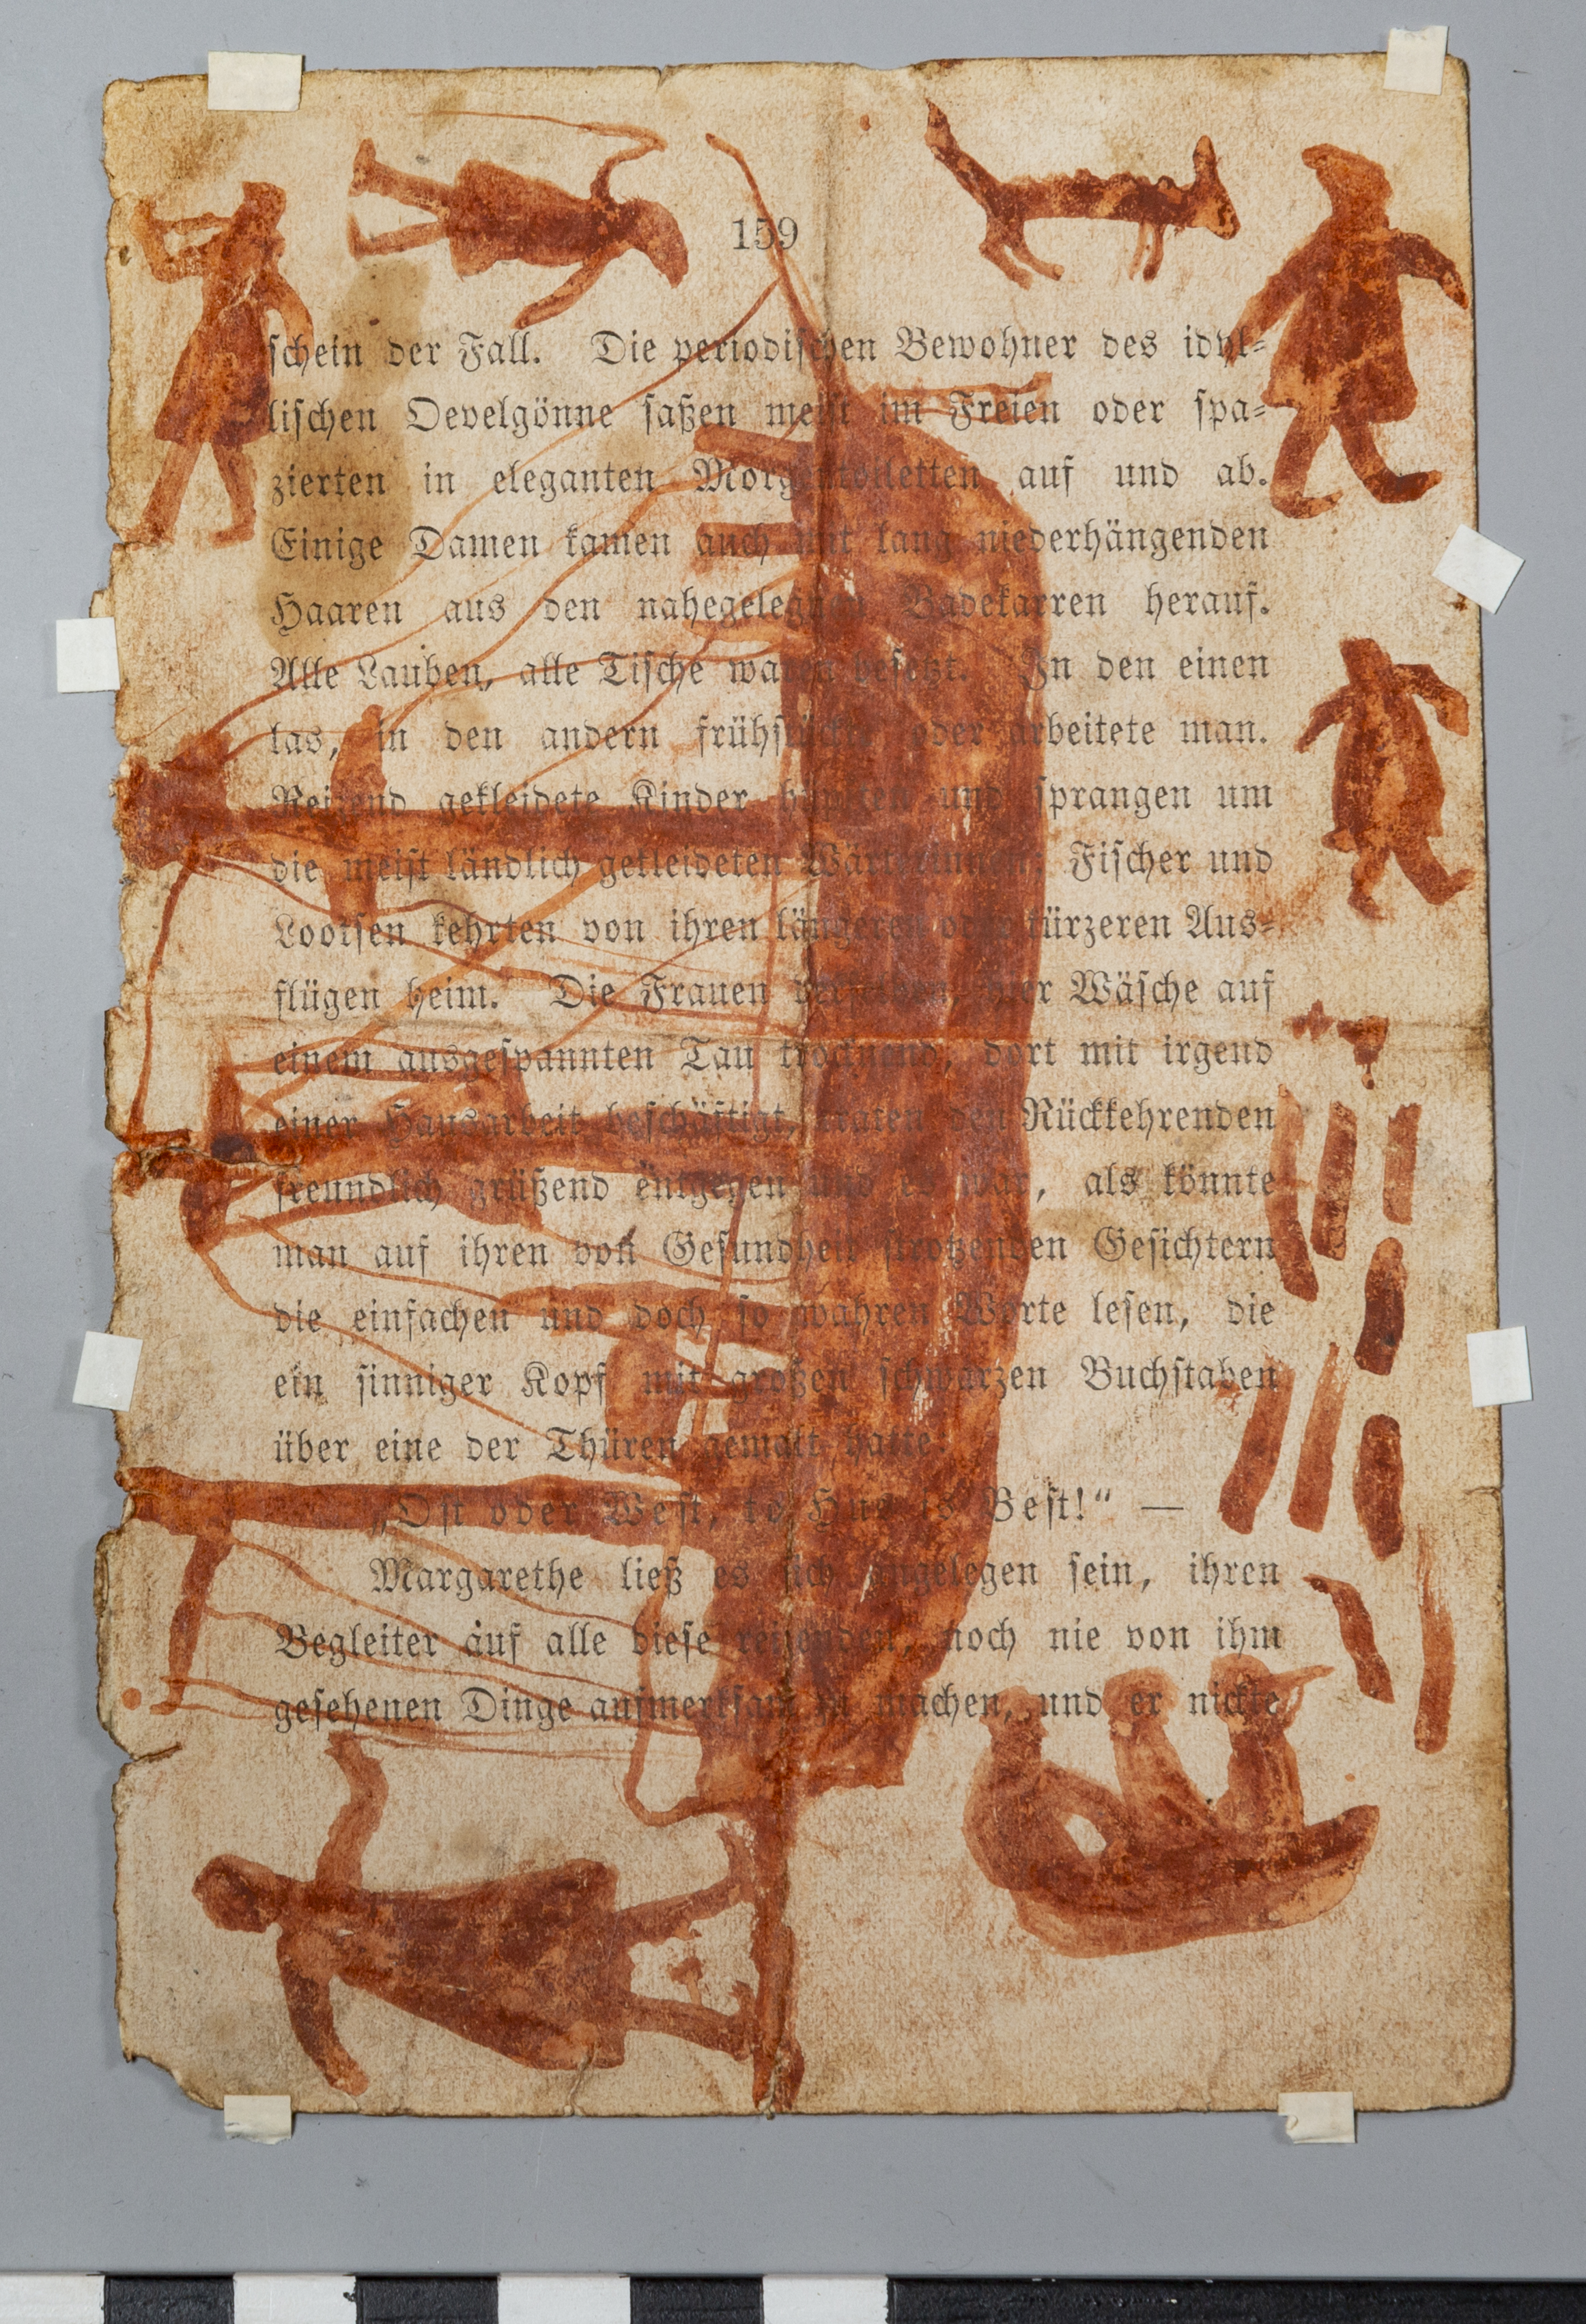 159
schein der Fall. Die periodischen Bewohner des idyl-
lischen Oevelgönne saßen meist im Freien oder spa-
zierten in eleganten Morgentoiletten auf und ab.
Einige Damen kamen auch mit lang niederhängenden
Haaren aus den nahegelegnen Badekarren herauf.
Alle Lauben, alle Tische waren besetzt. In den einen
las, in den andern frühstückte oder arbeitete man.
Reizend gekleidete Kinder hüpften und sprangen um
die meist ländlich gekleideten Wärterinnen; Fischer und
Lootsen kehrten von ihren längeren oder kürzeren Aus-
flügen heim. Die Frauen hier Wäsche auf
einem ausgespannten Tau trocknend, dort mit irgend
einer Hausarbeit beschäftigt, traten den Rückkehrenden
freundlich grüßend entgegen und es war, als könnte
man auf ihren von Gesundheit strotzenden Gesichtern
die einfachen und doch so wahren Worte lesen, die
ein sinniger Kopf mit großen schwarzen Buchstaben
über eine der Thüren gemalt hatte:
„Ost oder West, to Hus is Best!“ —
Margarethe ließ es sich angelegen sein, ihren
Begleiter auf alle diese reizenden, noch nie von ihm
gesehenen Dinge aufmerksam zu machen, und er nickte